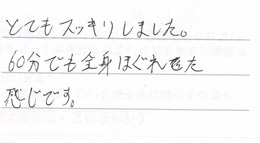 とてもスッキリしました。
60分でも全身ほぐれた
感じです。